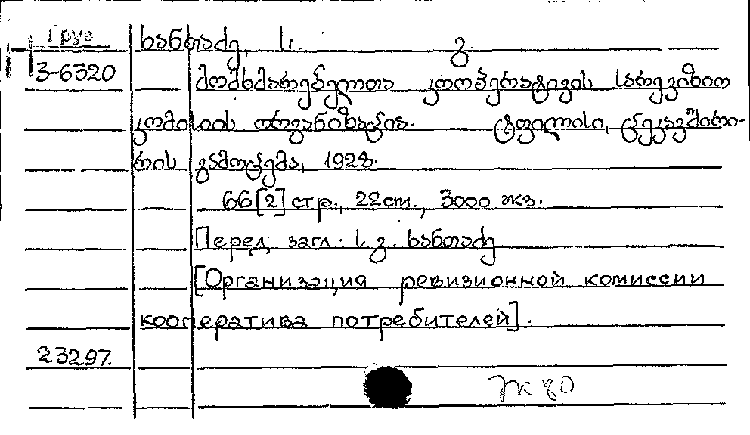 Груз
ხანთაძე, ს. გ
3-6320 მომხმარებელთა კოოპერატივის სარევიზიო
კომისიის ორგანიზაცია. ტფილისი, ცეკავშირი-
რის გამოცემა, 1928.
66 [2] стр., 22 см., 3000 экз.
Перед загл. ს. გ. ხანთაძე
[Организация ревизионной комиссии
кооператива потребителей].
23297.